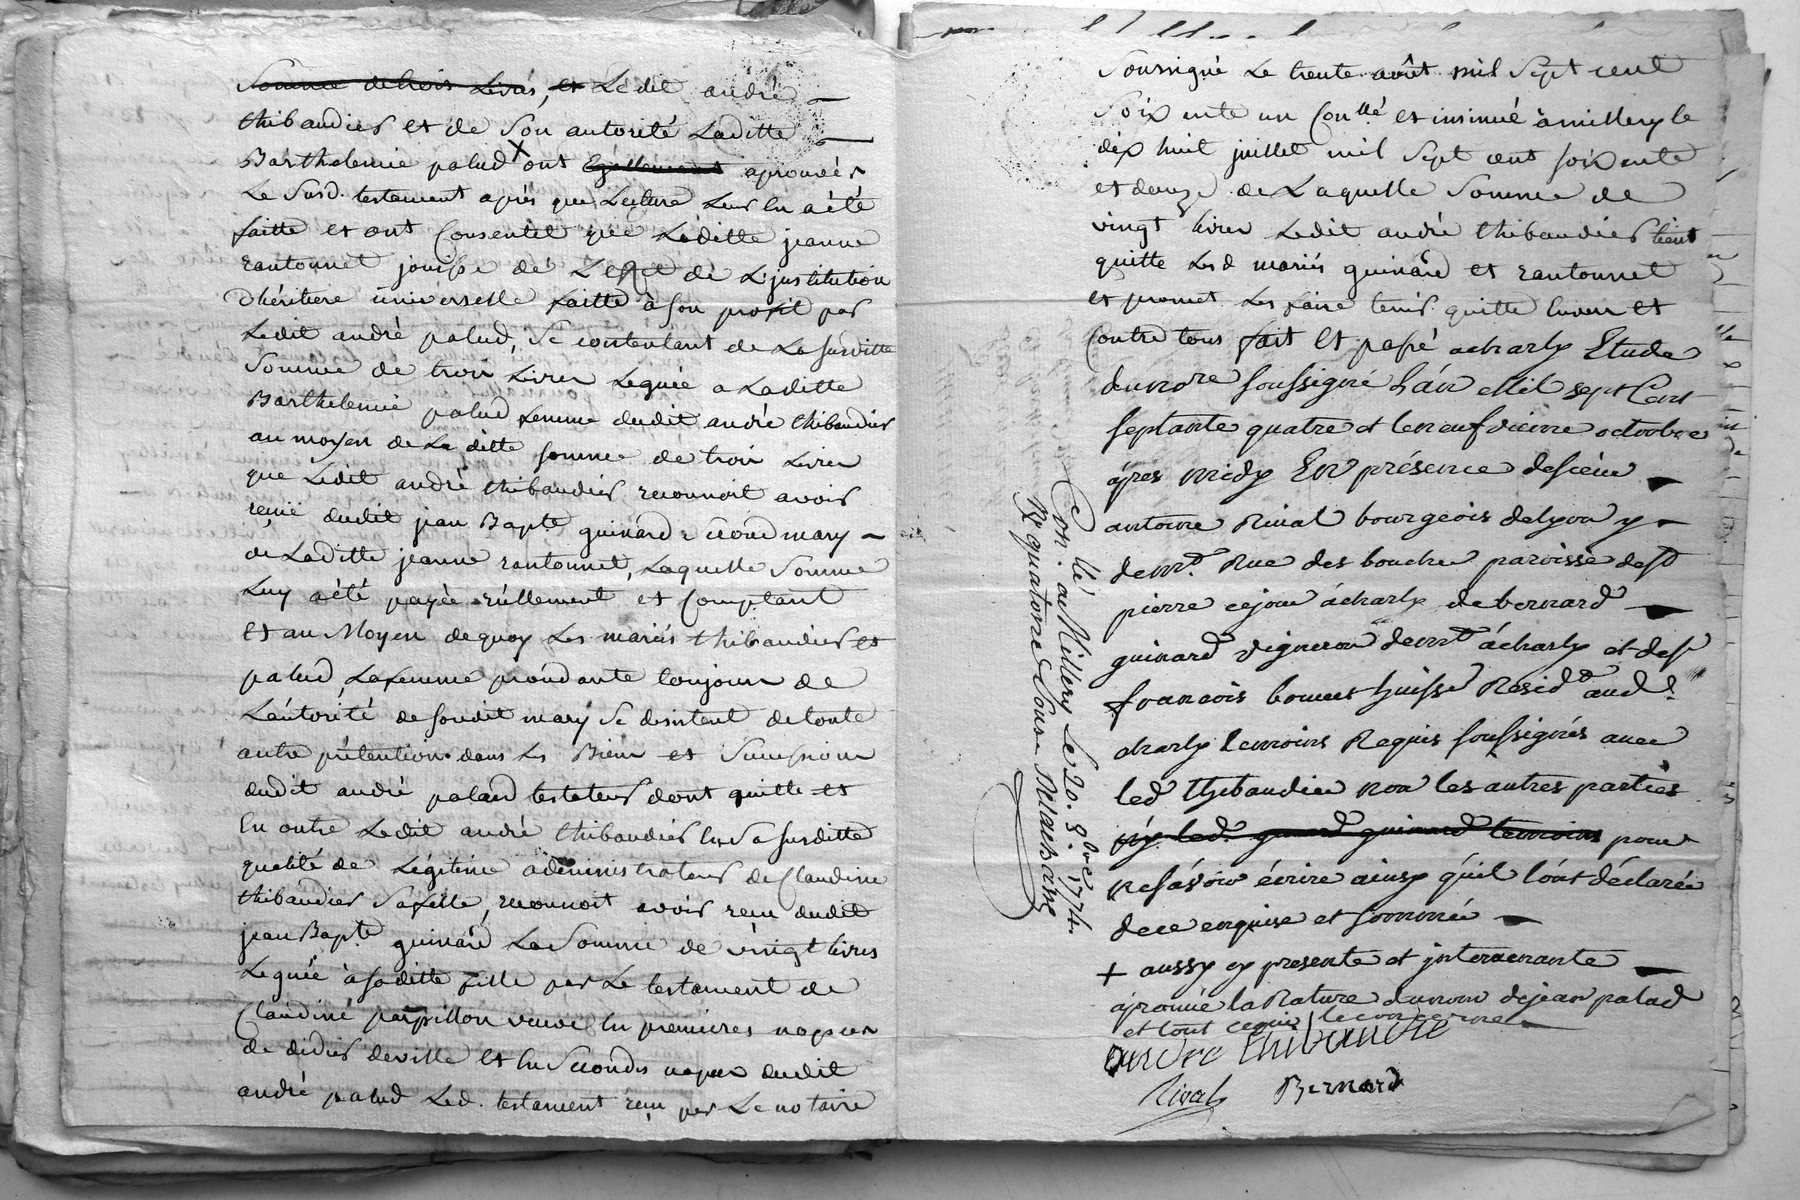 Somme de trois Livres, et Ledit andré
thibaudier et de Son autorité Laditte
Barthelemie palud X ont Egallement aprouvér
Le Susd. testament aprés que Lecture Leur En a èté
faitte et ont Consentit que Laditte jeanne
rantonnet jouisse de L'effet de L'justitution
dhéritiere universelle faitte à son profit par
Ledit andré palud, Se contentant de La susditte
Somme de trois Livres Leguée a Laditte
Barthelemie palud femme dudit andré thibaudier
au moyen de La ditte somme de trois Livres
que Ledit andré thibaudier reconnoit avoir
reçüe dudit jean Bapte guinard second mary
de Laditte jeanne rantonnet, Laquelle Somme
Luy a èté payée réellement et Comptant
Et au Moyen de quoy Les mariés thibaudier et
palud, La femme procèdante toujours de
L'autorité de sondit mary Se desistent de toute
autre prétention dans Les Biens et Succession
dudit andré palaud testateur dont quitte et
En outre Ledit andré thibaudier En Sa susditte
qualité de Légitime administrateur de Claudine
thibaudier Sa fille, reconnoit avoir reçu dudit
jean Bapte guinard La Somme de vingt livres
Leguée à saditte fille par Le testament de
Claudine papillon veuve En premieres nopces
de didier deville et En Secondes nopces dudit
andré palud Led. testament reçu par Le notaire
Soussigné Le trente août mil Sept cent
Soixente un Conllé et insinué à millery le
dix huit juillet mil Sept cent soixente
et douze de Laquelle Somme de
vingt livres Ledit andré thibaudier tient
quitte Lesd mariés guinard et rantonnet
et promet Les faire tenir quitte Envers et
Contre tous fait Et passé a charly Etude
du nore soussigné L'án Mil sept Cent
septante quatre et le neufvieme octobre
áprés midy En présence de sieur
antoine Rival bourgeois de lyon y
demt Rue des bouchers paroisse de st
pierre ce jour á charly de bernard
guinard vigneron demt á charly et de sr
francois bonnet suisse Resid aud
charly temoins Requis soussignés avec
led thibaudier non les autres parties
ny led guinard temoins pour
ne sávoir écrire ainsy qu'il l'ont déclarée
de ce enquise et sommée
+ aussy cy presente et jntervenante
áprouvé la Rature du nom de jean palud
et tout ce qui le concerne
andre thibaudié
Rival Bernard
Conllé a Millery Le 20. 8bre 1774.
R. quatorze Sous